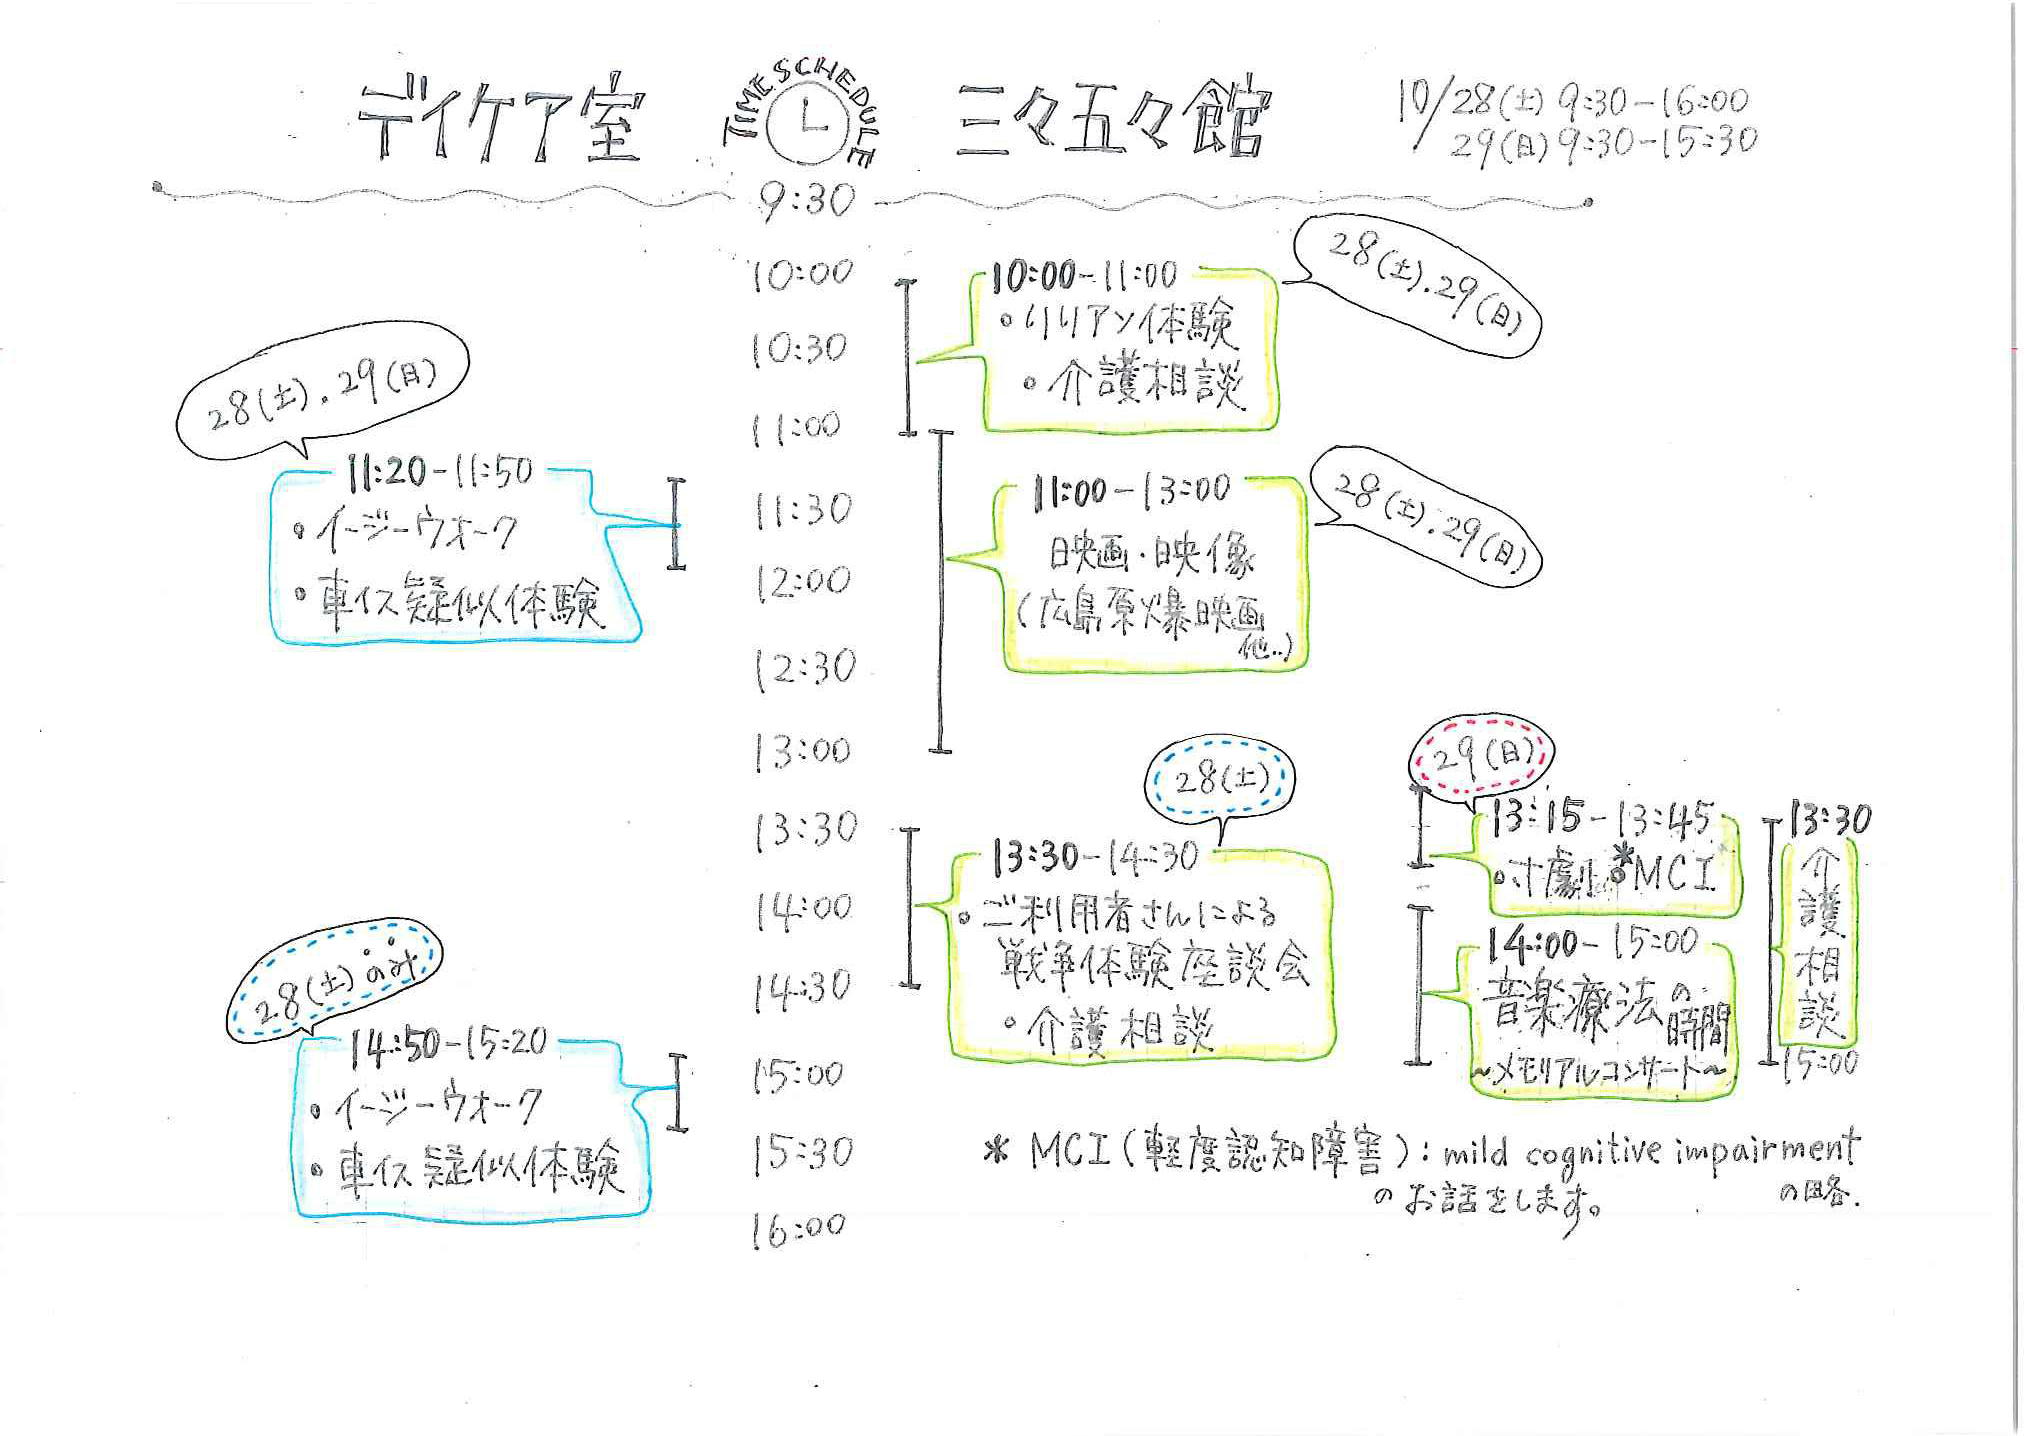 デイケア室
TIME SCHEDULE
三々五々館
10/28(土) 9:30-16:00
29(日) 9:30-15:30
9:30
10:00
10:30
11:00
11:30
12:00
12:30
13:00
13:30
14:00
14:30
15:00
15:30
16:00
28(土).29(日)
11:20-11:50
・イージーウォーク
・車イス疑似体験
28(土)のみ
14:50-15:20
・イージーウォーク
・車イス疑似体験
28(土).29(日)
10:00-11:00
・リリアン体験
・介護相談
28(土).29(日)
11:00-13:00
映画・映像
(広島原爆映画
他..)
28(土)
13:30-14:30
・ご利用者さんによる
戦争体験座談会
・介護相談
29(日)
13:15-13:45
・寸劇 *MCI
14:00-15:00
音楽療法の
時間
~メモリアルコンサート~
13:30
介護相談
15:00
* MCI(軽度認知障害): mild cognitive impairment
のお話をします。
の略.